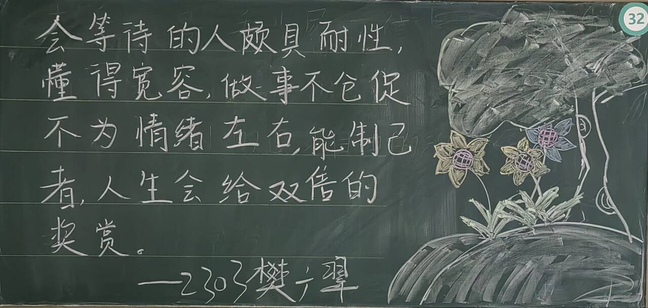 会等待的人颇具耐性,
懂得宽容,做事不仓促
不为情绪左右,能制己
者,人生会给双倍的
奖赏。
—2303樊
32